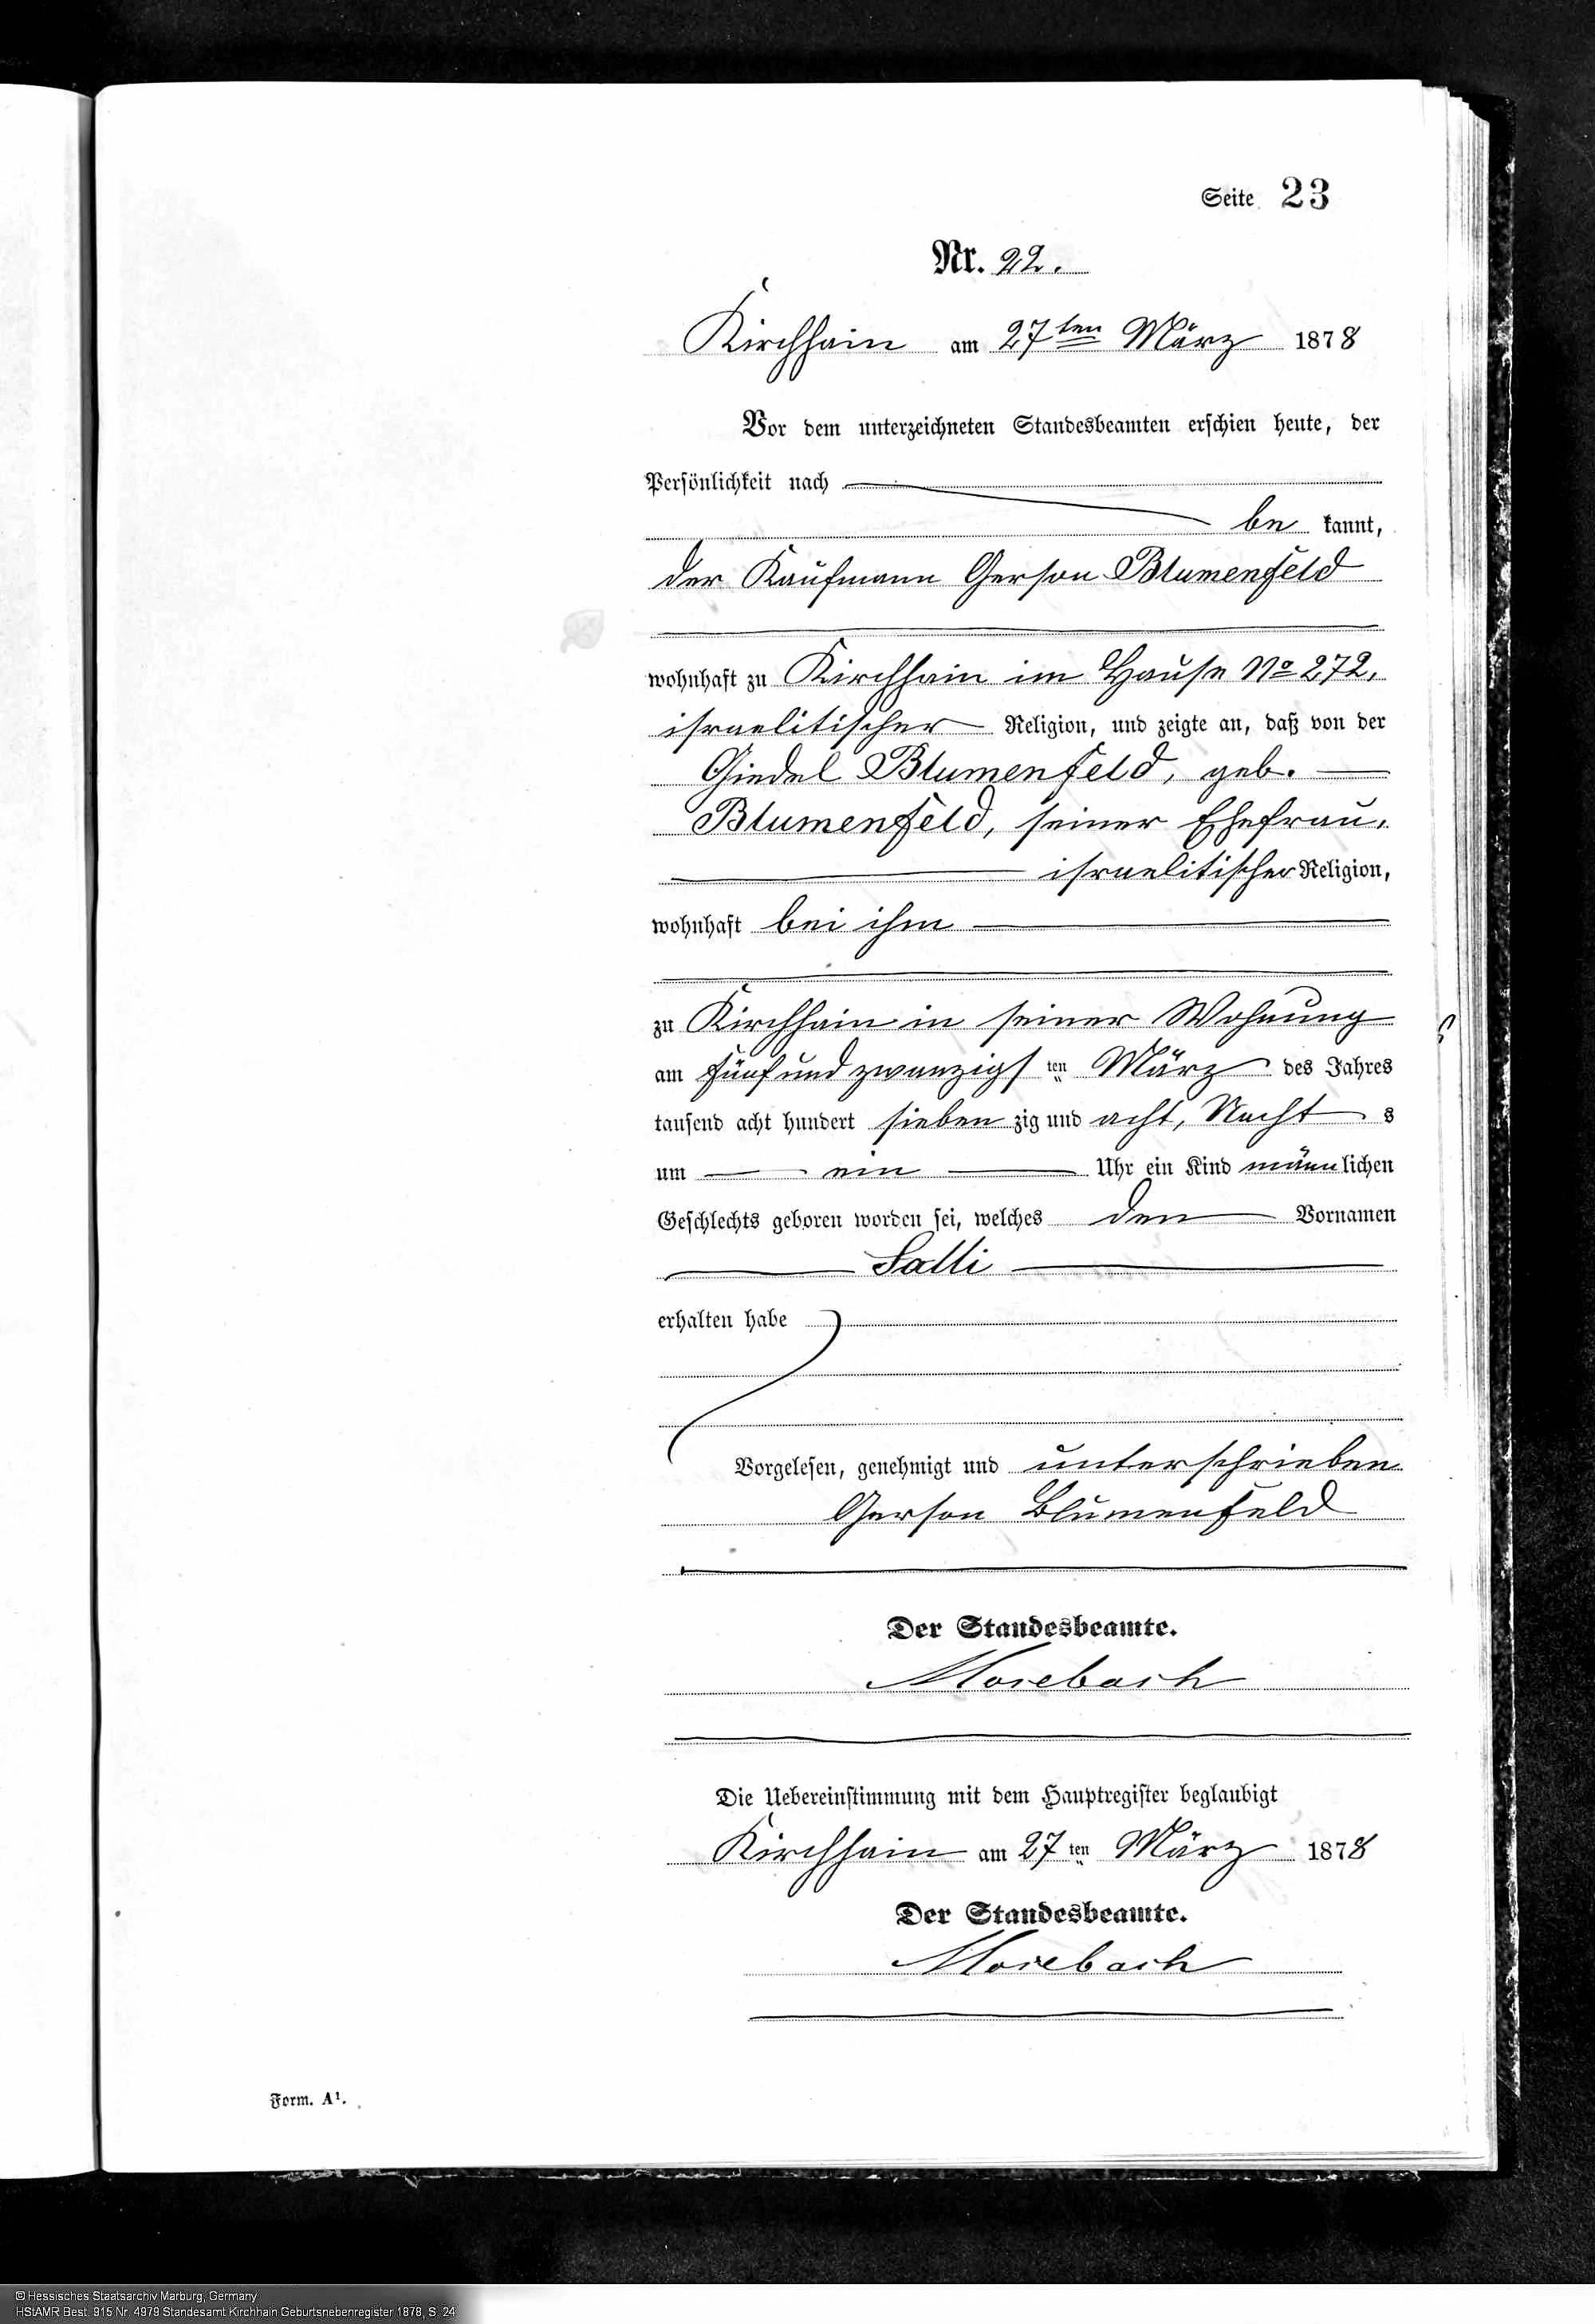 Seite 23
Nr. 22.
Kirchhain am 27ten März 1878
Vor dem unterzeichneten Standesbeamten erschien heute, der
Persönlichkeit nach
be kannt,
der Kaufmann Gerson Blumenfeld
wohnhaft zu Kirchhain im Hause No 272,
israelitischer Religion, und zeigte an, daß von der
Giedel Blumenfeld, geb.
Blumenfeld, seiner Ehefrau,
israelitischer Religion,
wohnhaft bei ihm
zu Kirchhain in seiner Wohnung
am fünfundzwanzigs ten März des Jahres
tausend acht hundert sieben zig und acht, Nacht s
um ein Uhr ein Kind männlichen
Geschlechts geboren worden sei, welches den Vornamen
Salli
erhalten habe
Vorgelesen, genehmigt und unterschrieben
Gerson Blumenfeld
Der Standesbeamte.
Mosebach
Die Uebereinstimmung mit dem Hauptregister beglaubigt
Kirchhain am 27 ten März 1878
Der Standesbeamte.
Mosebach
Form. A¹.
© Hessisches Staatsarchiv Marburg, Germany
HStAMR Best. 915 Nr. 4979 Standesamt Kirchhain Geburtsnebenregister 1878, S. 24